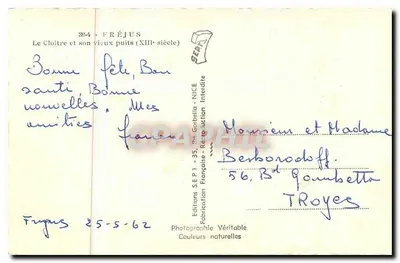 384 - FRÉJUS
Le Cloître et son vieux puits (XIIIe siècle)
Bonne fête, Bon
santé, Bonne
nouvelles. Mes
amitiés
SEPI
Editions S E P I - 35, Rue Gubella - NICE
Fabrication Française - Reproduction Interdite
Monsieur et Madame
Berborodoff
56, Bd Gambetta
TROYES
Frejus 25-5-62
Photographie Véritable
Couleurs naturelles